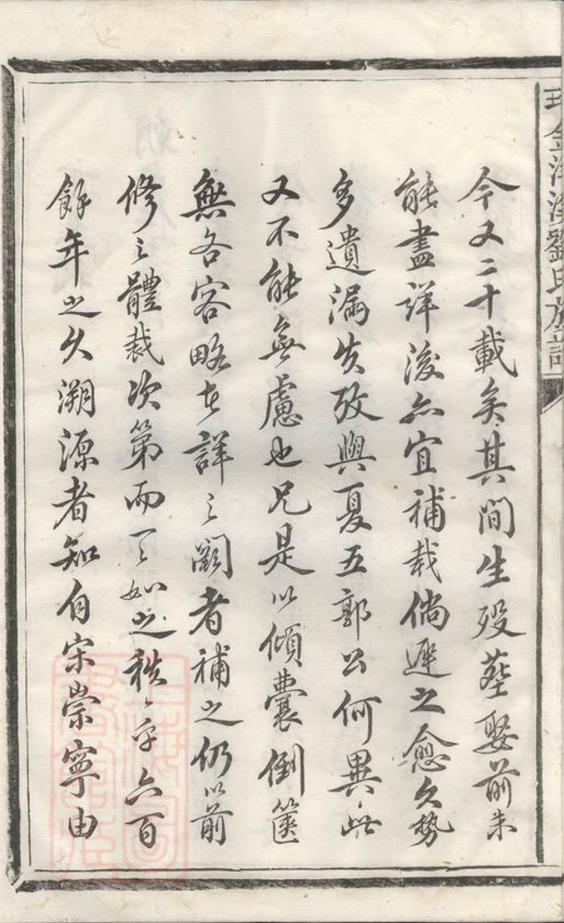 今又二十載矣其間生歿塟娶前未
能盡詳後亦宜補栽倘遲之愈久勢
多遺漏失攷與夏五郭公何異此
又不能無慮也兄是以傾囊倒篋
無吝客略者詳之闕者補之仍以前
修之體裁次第而一一如之秩秩乎六百
餘年之久溯源者知自宋崇寧由
劉氏族譜